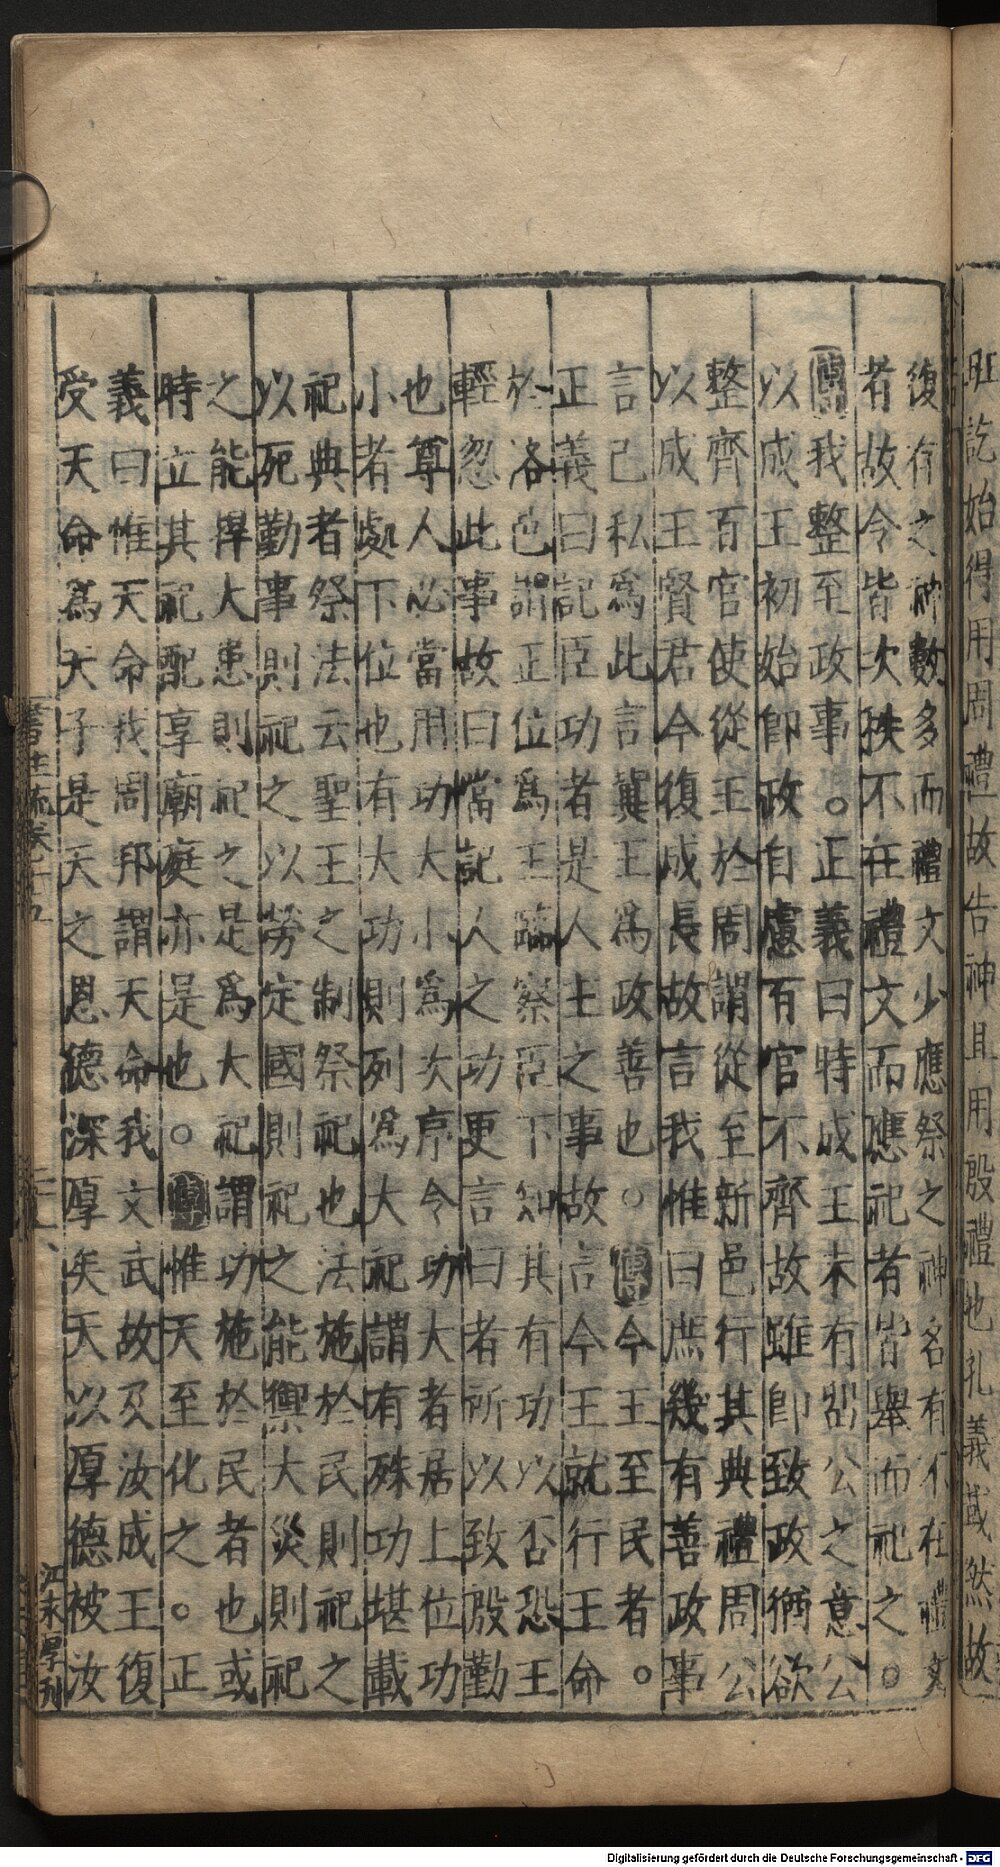 旺訖始得用周禮故告神且用殷禮也孔義或然故
復存之神數多而禮文少應祭之神名有不在禮文
者故令皆次秩不在禮文而應祀者皆舉而祀之。
傳我整至政事。正義曰特成王未有留公之意公
以成王初始即政自慮百官不齊故雖即致政猶欲
整齊百官使從王於周謂從至新邑行其典禮周公
以成王賢君今復成長故言我惟曰庶幾有善政事
言己私為此言冀王為政善也○傳今王至民者。
正義曰記臣功者是人主之事故言今王就行王命
於洛邑謂正位為王臨察臣下知其有功以否恐王
輕忽此事故曰當記人之功更言曰者所以致殷勤
也尊人必當用功大小為次序令功大者居上位功
小者處下位也有大功則列為大祀謂有殊功堪載
祀典者祭法云聖王之制祭祀也法施於民則祀之
以死勤事則祀之以勞定國則祀之能禦大災則祀
之能捍大患則祀之是為大祀謂功施於民者也或
時立其祀配享廟庭亦是也○傳惟天至化之。正
義曰惟天命我周邦謂天命我文武故及汝成王復
受天命為天子是天之恩德深厚矣天以厚德被汝
書注疏卷十五
二十八
江末學刊
Digitalisierung gefördert durch die Deutsche Forschungsgemeinschaft - DFG